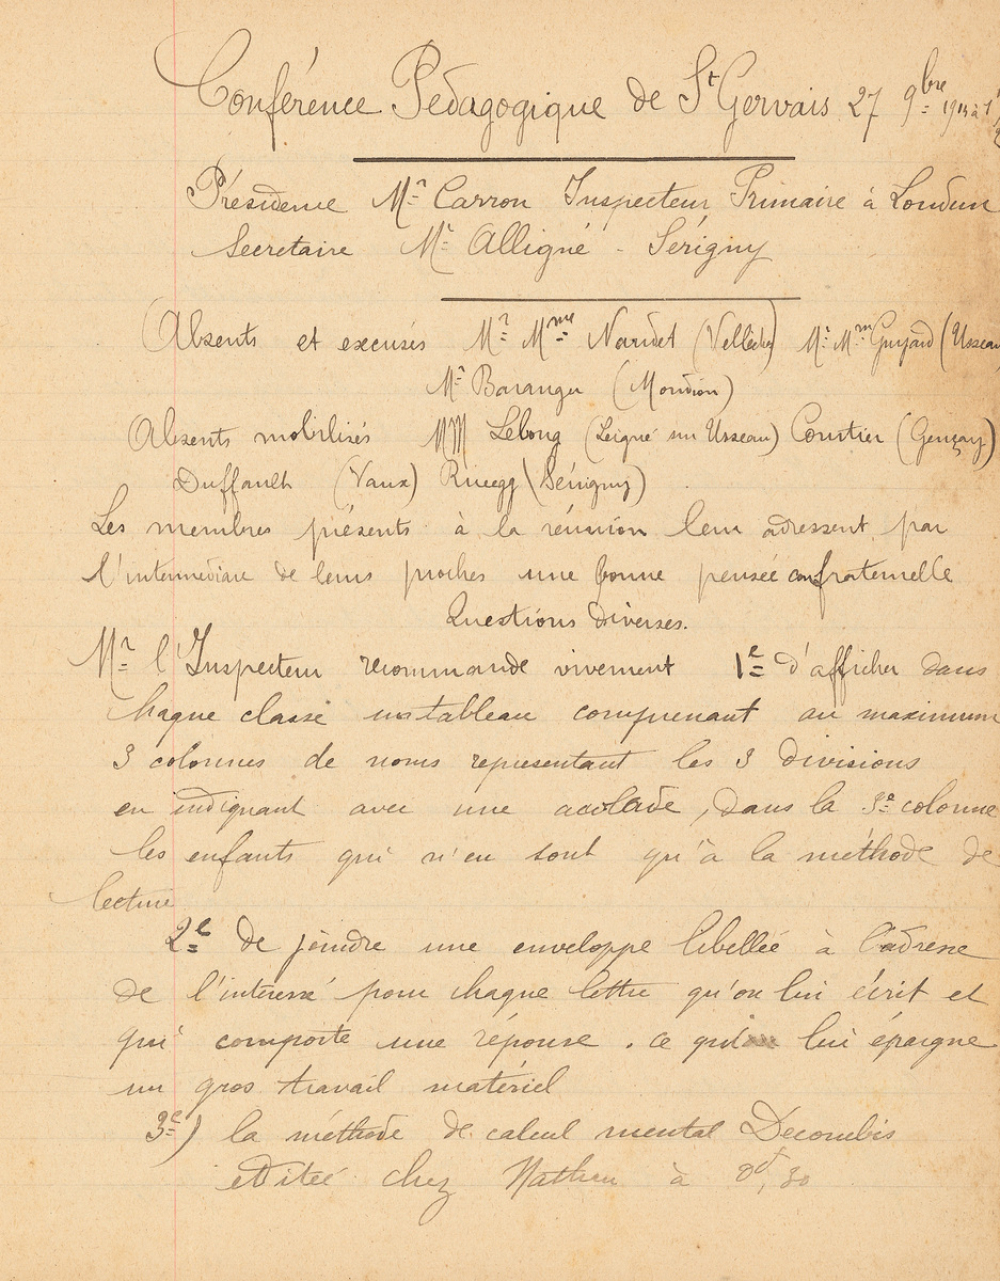 Conférence Pédagogique de St Gervais 27 9bre
Présidence Mr Carron Inspecteur Primaire à Loudun
Secretaire Mr Alligné - Sérigny
Absents et excusés Mr Mme Nardet (Vellèche) Mr Mme Guyard (Usseau
Mr Baranger (Mondion)
Absents mobilisés MM Lebong (Leigné sur Usseau) Coustier (Gençay)
Duffault (Vaux) (Sérigny)
Les membres présents à la réunion leur adressent, par
l'intermédiare de leurs proches une bonne pensée confraternelle
Questions diverses.
Mr l'Inspecteur recommande vivement 1e d'afficher dans
chaque classe un tableau comprenant au maximum
3 colonnes de noms representant les 3 divisions
en indiquant avec une accolade, dans la 3e colonne
les enfants qui n'en sont qu'à la méthode de
lecture
2e de joindre une enveloppe libellée à l'adresse
de l'interessé pour chaque lettre qu'on lui écrit et
qui comporte une réponse. ce qui lui épargne
un gros travail matériel
3e) la méthode de calcul mental Decombis
editée chez Nathan à 0f,30